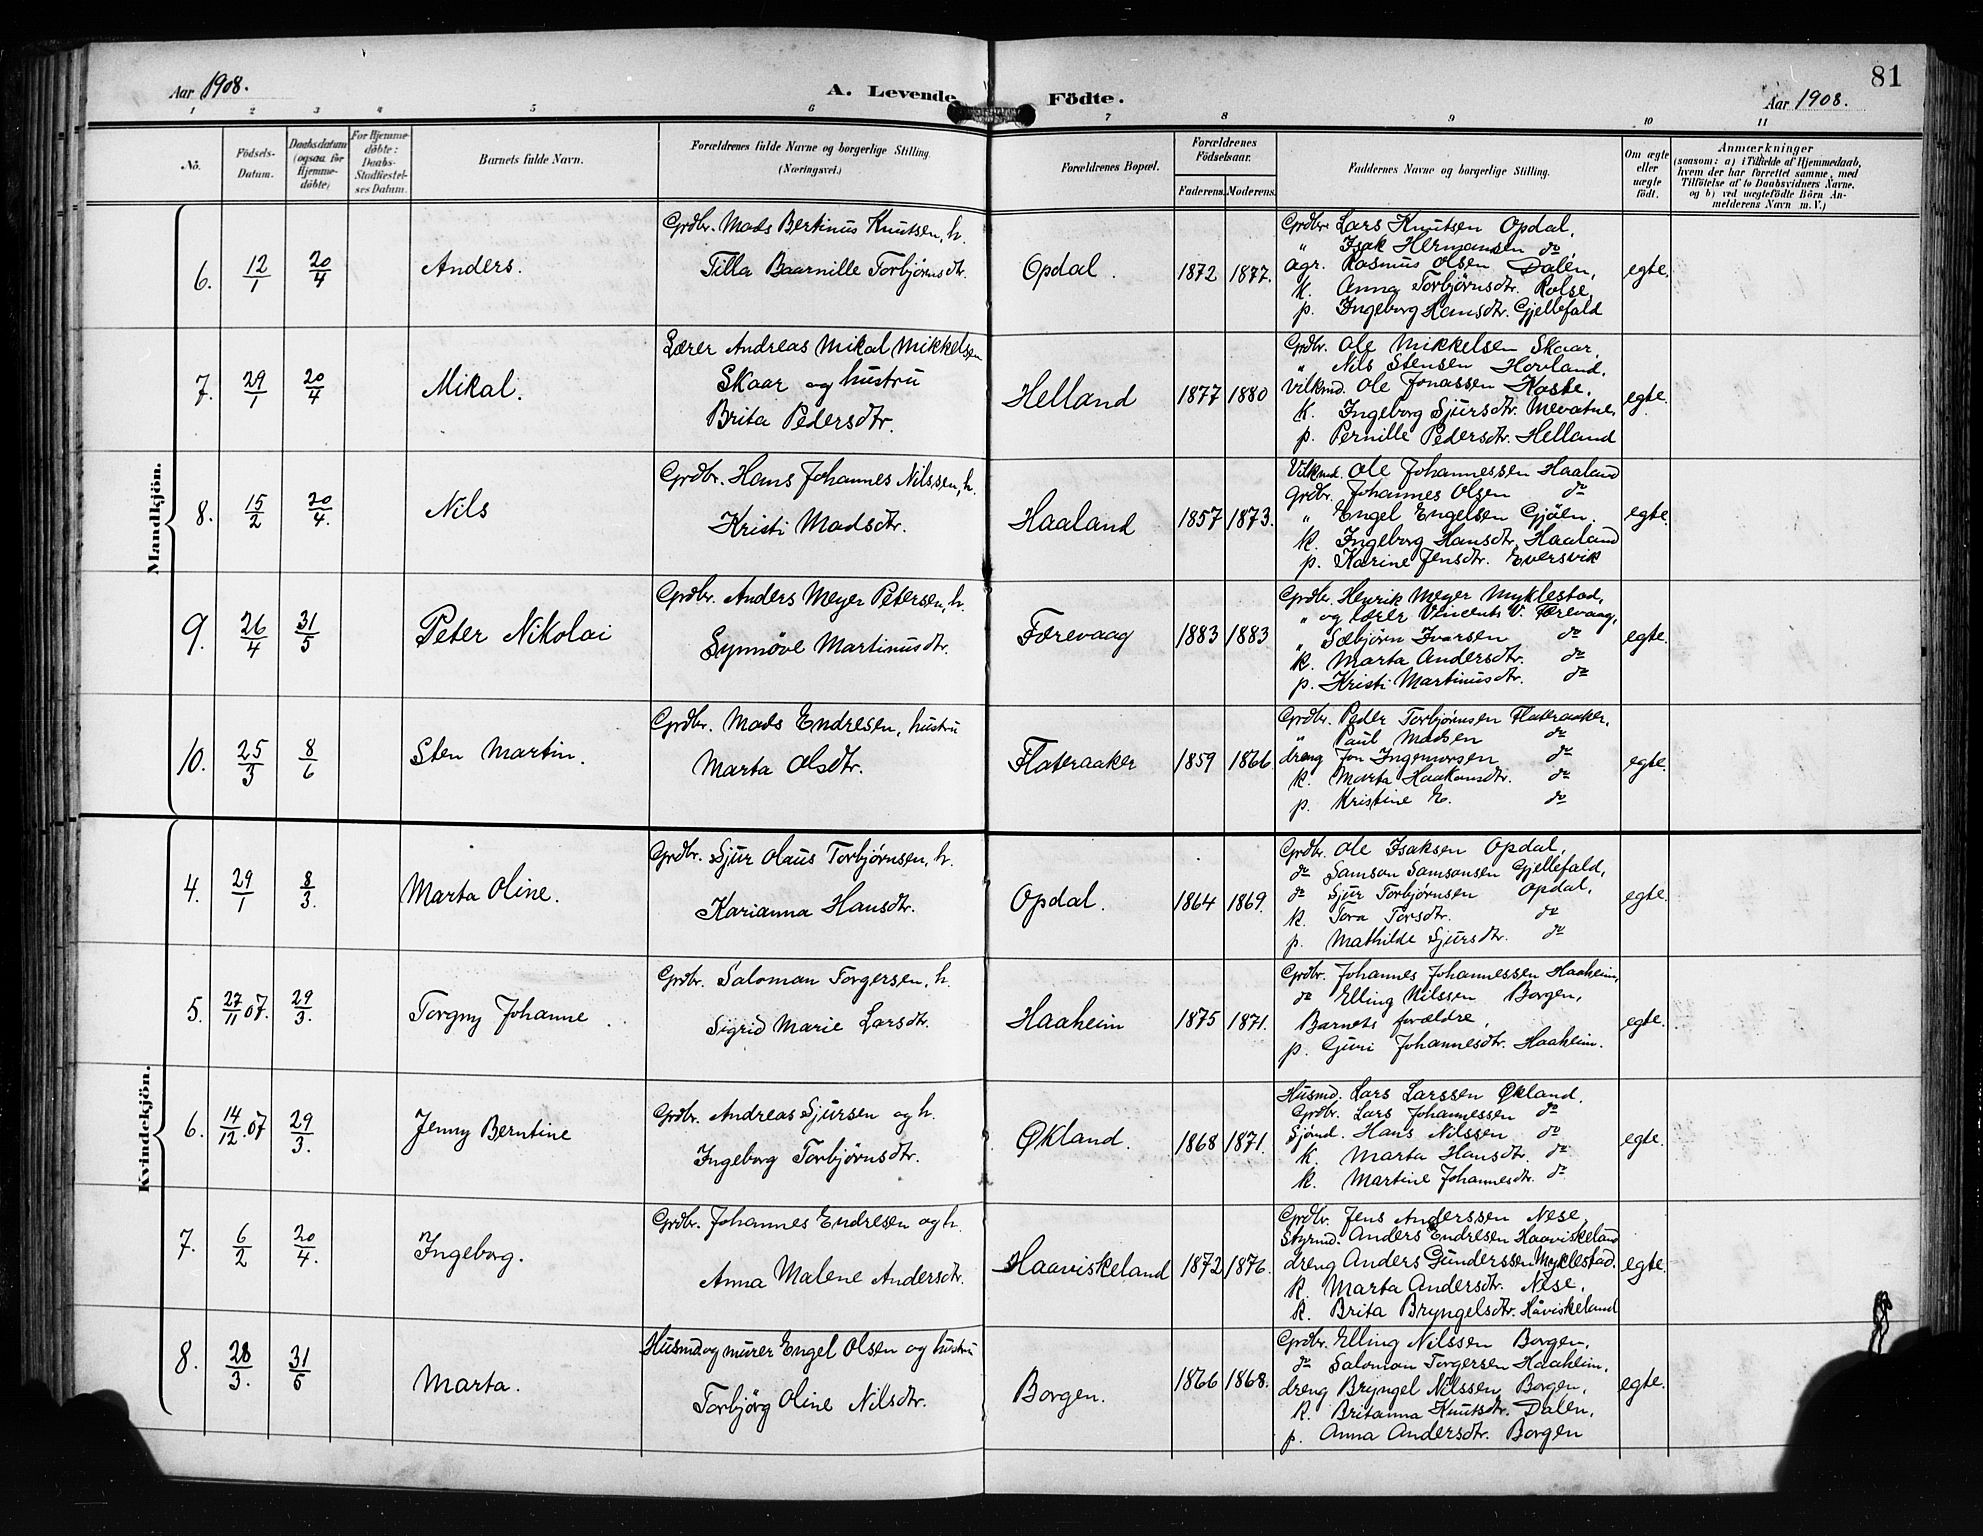 81
Aar 1908. A. Levende Födte. Aar 1908.
1 2 3 4 5 6 7 8 9 10 11
No. Födsels-Datum. Daabsdatum (ogsaa for Hjemmedöbte) For Hjemmedöbte: Daabs-Stadfæstelses Datum. Barnets fulde Navn. Forældrenes fulde Navne og borgerlige Stilling (Næringsvei.) Forældrenes Bopæl. Forældrenes Födselsaar. Faderens. Moderens. Faddernes Navne og borgerlige Stilling. Om ægte eller uægte födt. Anmærkninger (saasom: a) i Tilfælde af Hjemmedaab, hvem der har forrettet samme, med Tilföielse af to Daabsvidners Navne. og b) ved uægtefödte Börn Anmelderens Navn m. V.)
Mandkjön.
6. 12/1 20/4 Anders. Grdbr. Mads Bertinus Knutsen, h.
Tilla Baarnille Torbjörnsdtr. Opdal. 1872 1877. egte.
Grdbr. Lars Knutsen Opdal,
" Isak Hermansen do
agr. Rasmus Olsen Dalen,
k. Anna Torbjörnsdtr. Rolse,
p. Ingeborg Hansdtr. Gjellefald
7. 29/1 20/4 Mikal. Lærer Andreas Mikal Mikkelsen
Skaar og hustru
Brita Pedersdtr. Helland 1877 1880 egte.
Grdbr. Ole Mikkelsen Skaar,
" Nils Stensen Hovland,
Vilkmd. Ole Jonassen Kaske,
k. Ingeborg Sjursdtr. Mevatne,
p. Pernille Pedersdtr. Helland
8. 15/2 20/4. Nils Grdbr. Hans Johannes Nilssen, h.
Kristi Madsdtr. Haaland 1857 1873. egte.
Vilkmd. Ole Johannessen Haaland
Grdbr. Johannes Olsen do
" Engel Engelsen Gjöen,
k. Ingeborg Hansdtr. Haaland
p. Karine Jensdtr. Eversvik
9. 26/4 31/5 Peter Nikolai Grdbr. Anders Meyer Petersen, h.
Synnøve Martinusdtr. Færevaag 1883 1883 egte.
Grdbr. Henrik Meyer Myklestad,
" og lærer Vincents V. Færevaag,
" Sæbjørn Ivarsen do
k. Marta Andersdtr. do
p. Kristi Martinusdtr. do
10. 25/3 8/6 Sten Martin. Grdbr. Mads Endresen, hustru
Marta Olsdtr. Flateraaker 1859 1866. egte.
Grdbr. Peder Torbjørnsen Flateraaker,
" Paul Madsen do
dreng Jon Ingemorsen do
k. Marta Haakonsdtr. do
p. Kristine E. do
Kvindekjön.
4. 29/1 8/3. Marta Oline. Grdbr. Sjur Olaus Torbjørnsen, h.
Karianna Hansdtr. Opdal. 1864 1869. egte.
Grdbr. Ole Isaksen Opdal,
do Samson Samsonsen Gjellefald,
do Sjur Torbjørnsen Opdal,
k. Tora Torsdtr. do
p. Mathilde Sjursdtr. do
5. 27/11 07. 29/3. Torgny Johanne. Grdbr. Saloman Torgersen, h.
Sigrid Marie Larsdtr. Haaheim 1875 1871. egte.
Grdbr. Johannes Johannessen Haaheim,
do Elling Nilssen Borgen,
Barnets forældre,
p. Guri Johannesdtr. Haaheim.
6. 14/12. 07 29/3. Jenny Berntine Grdbr. Andreas Sjursen og h.
Ingeborg Torbjørnsdtr. Økland. 1868 1871. egte.
Husmd. Lars Larssen Økland.
Grdbr. Lars Johannessen do
Sjømd. Hans Nilssen do
k. Marta Hansdtr. do
k. Martine Johannesdtr. do
7. 6/2 20/4. Ingeborg. Grdbr. Johannes Endresen og h.
Anna Malene Andersdtr. Haaviskeland 1872 1876. egte.
Grdbr. Jens Anderssen Nese,
Styrmd. Anders Endresen Haaviskeland
dreng Anders Gunderssen Myklestad.
k. Marta Andersdtr. Nese,
k. Brita Bryngelsdtr. Håviskeland
8. 28/3. 31/5 Marta. Husmd og murer Engel Olsen og hustru
Torbjörg Oline Nilsdtr. Borgen. 1866 1868. egte.
Grdbr. Elling Nilssen Borgen,
do Saloman Torgersen Haaheim,
dreng Bryngel Nilssen Borgen,
k. Britanna Knutsdtr. Dalen,
p. Anna Andersdtr. Borgen